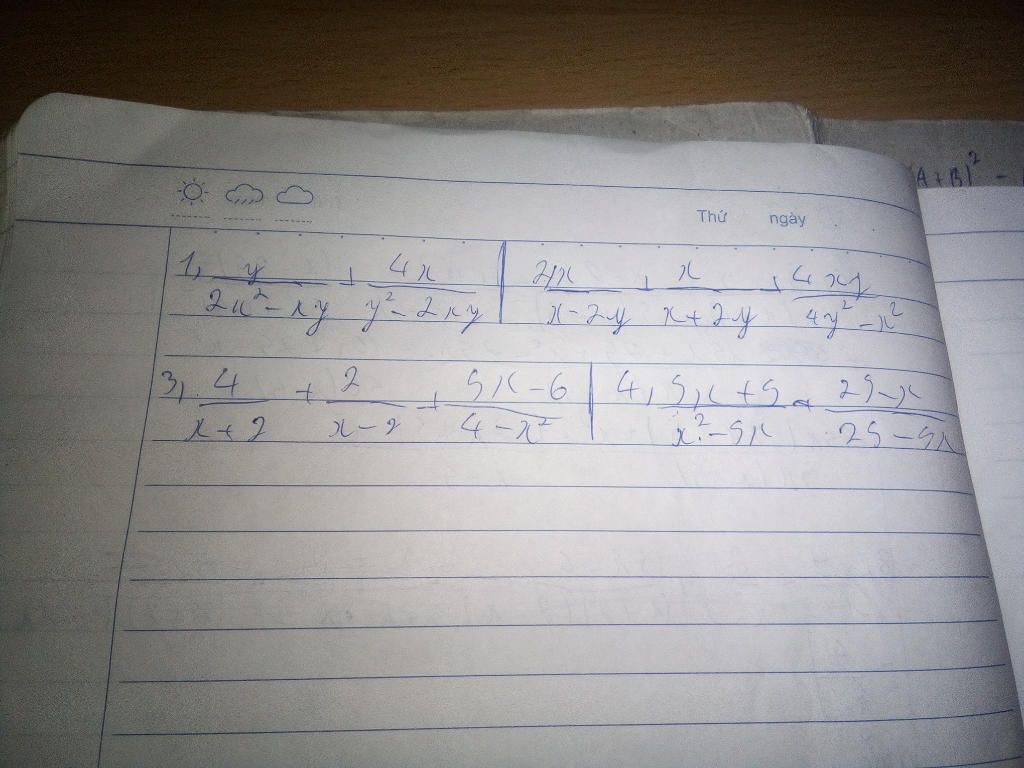 A+B)² -
Thứ ngày
1, y/(2x² - xy) + 4x/(y² - 2xy) | 2, x/(x - 2y) + x/(x + 2y) + 4xy/(4y² - x²)
3, 4/(x + 2) + 2/(x - 2) + (5x - 6)/(4 - x²) | 4, (5x + 5)/(x² - 5x) + (25 - x)/(25 - 5x)